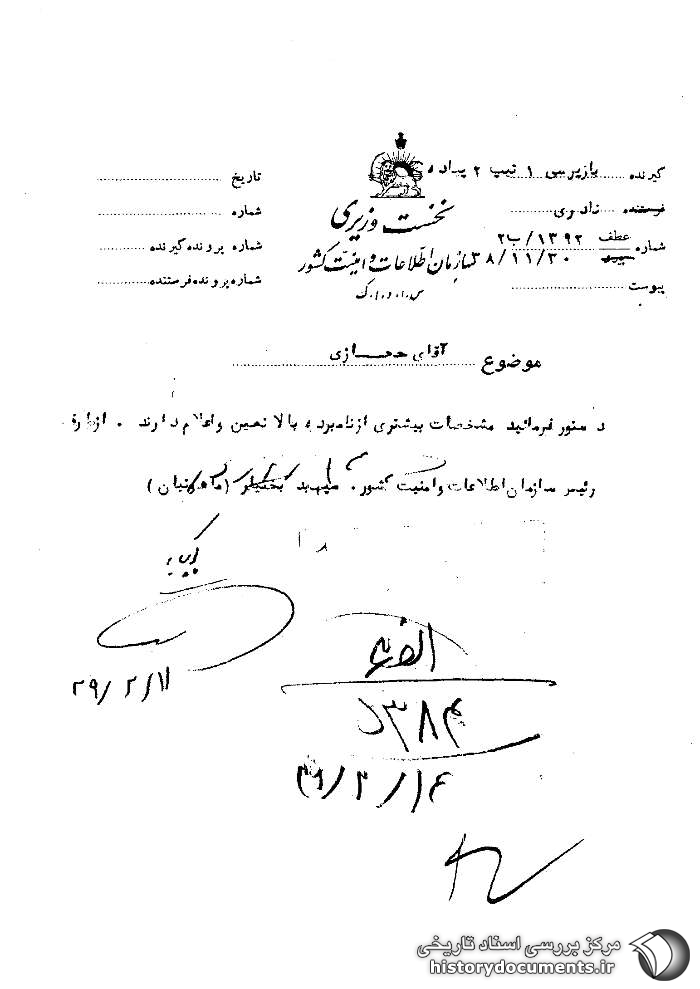 گیرنده بازپرسی ۱ تیپ ۲ پیاده
فرستنده نادری
شماره عطف ۱۳۹۲/ب۲
۳۸/۱۱/۳۰
پیوست
نخست وزیری
سازمان اطلاعات و امنیت کشور
س.ا.و.ا.ک
تاریخ
شماره
شماره پرونده گیرنده
شماره پرونده فرستنده
موضوع آقای حجازی
دستور فرمائید مشخصات بیشتری از نامبرده بالا تعیین و اعلام دارند . از طرف
رئیس سازمان اطلاعات و امنیت کشور. سپهبد بختیار
۳۸۴
۳۹/۲/۱۴
مرکز بررسی اسناد تاریخی
historydocuments.ir